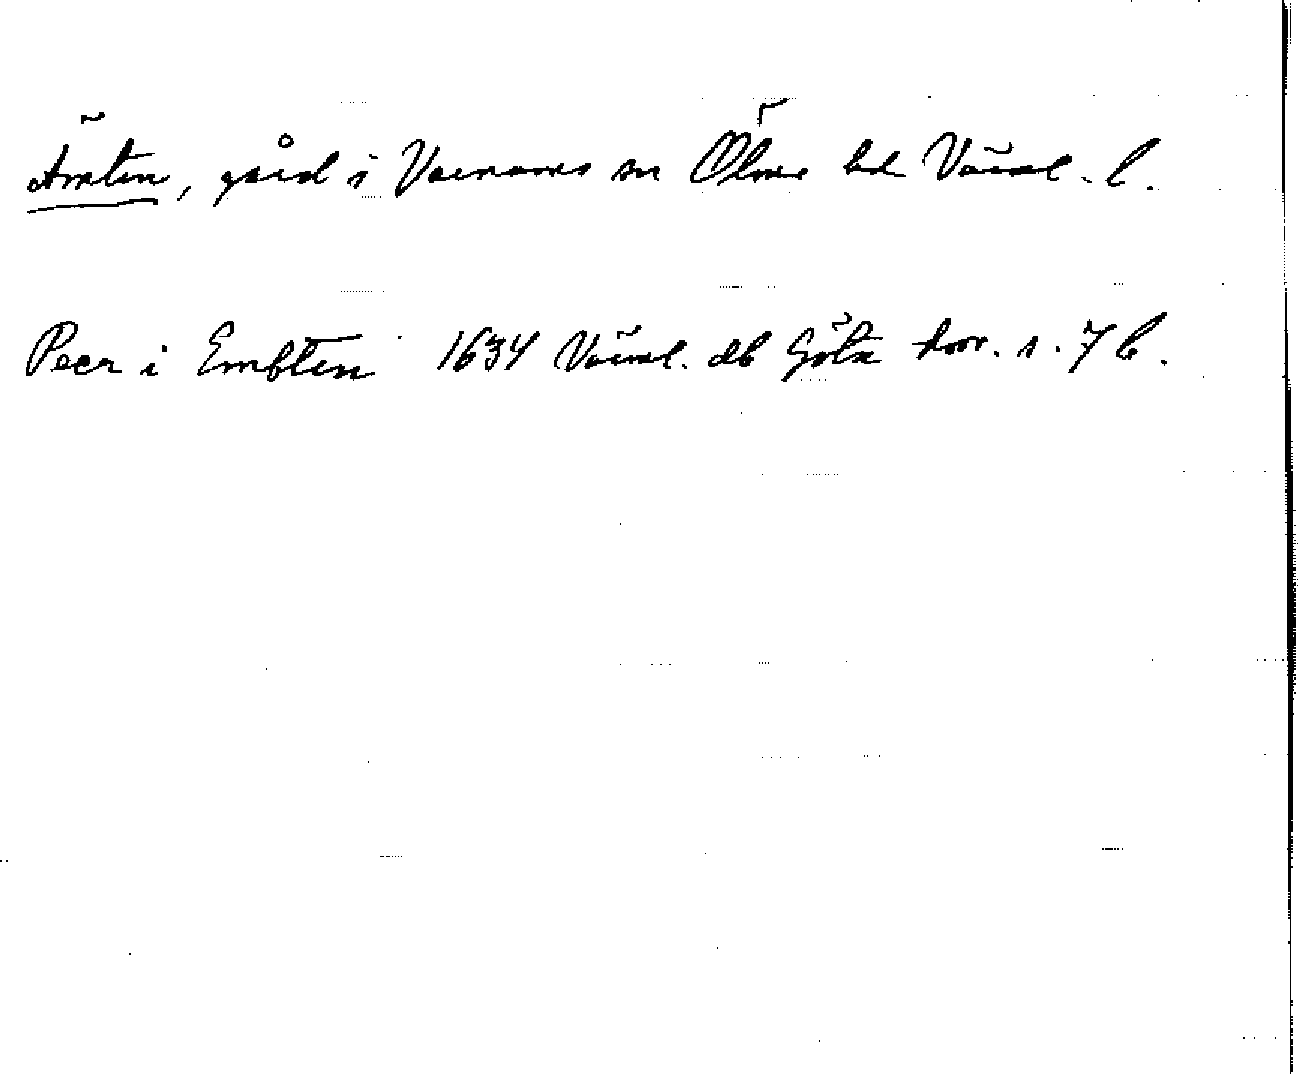 Ämten, gård i Varnums sn Ölme hd Värml. l.
Peer i Embten 1634 Värml. db Göta hovr. s. 7 b.